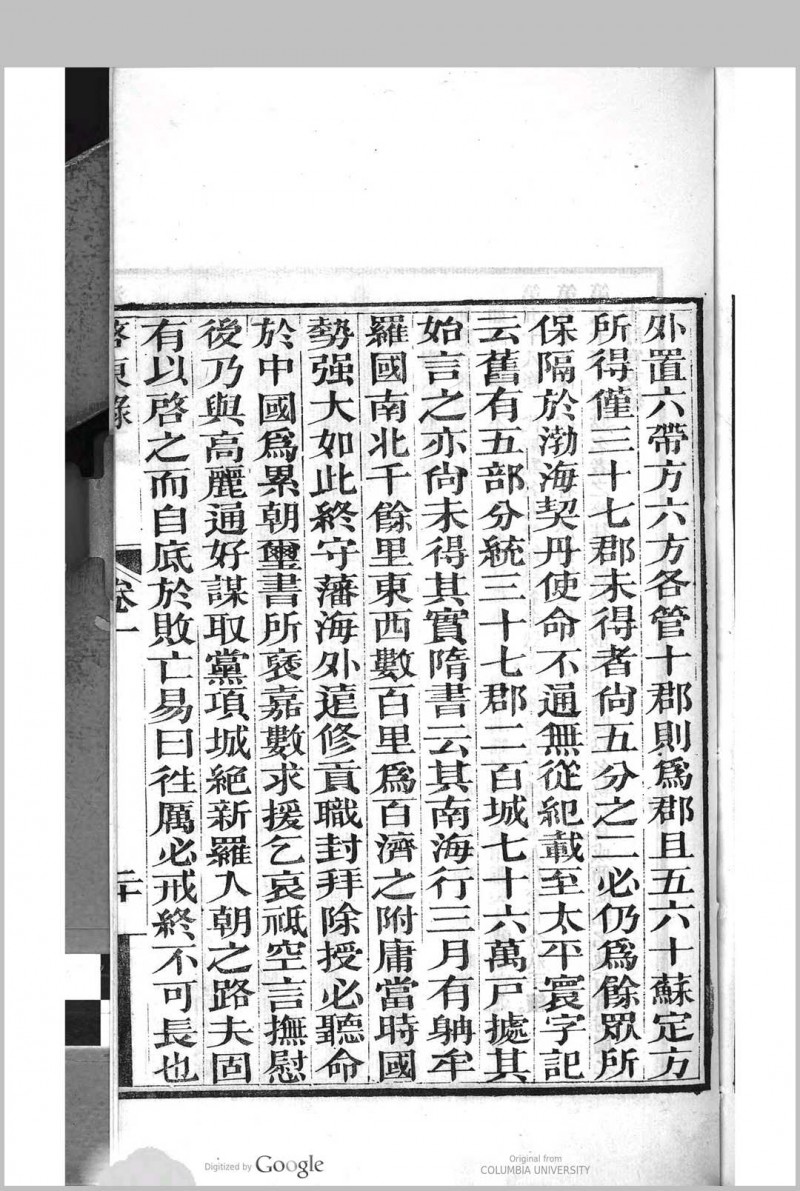 外置六帶方六方各管十郡則爲郡且五六十蘇定方
所得僅三十七郡未得者尙五分之二必仍爲餘眾所
保隔於渤海契丹使命不通無從紀載至太平寰宇記
云舊有五部分統三十七郡二百城七十六萬戸據其
始言之亦尙未得其實隋書云其南海行三月有躭牟
羅國南北千餘里東西數百里爲百濟之附庸當時國
勢强大如此終守藩海外遠修貢職封拜除授必聽命
於中國爲累朝璽書所褒嘉數求援乞哀祗空言撫慰
後乃與高麗通好謀取黨項城絕新羅入朝之路夫固
有以啓之而自底於敗亡易曰徃厲必戒終不可長也
東錄
卷一
二十
Digitized by Google
Original from
COLUMBIA UNIVERSITY